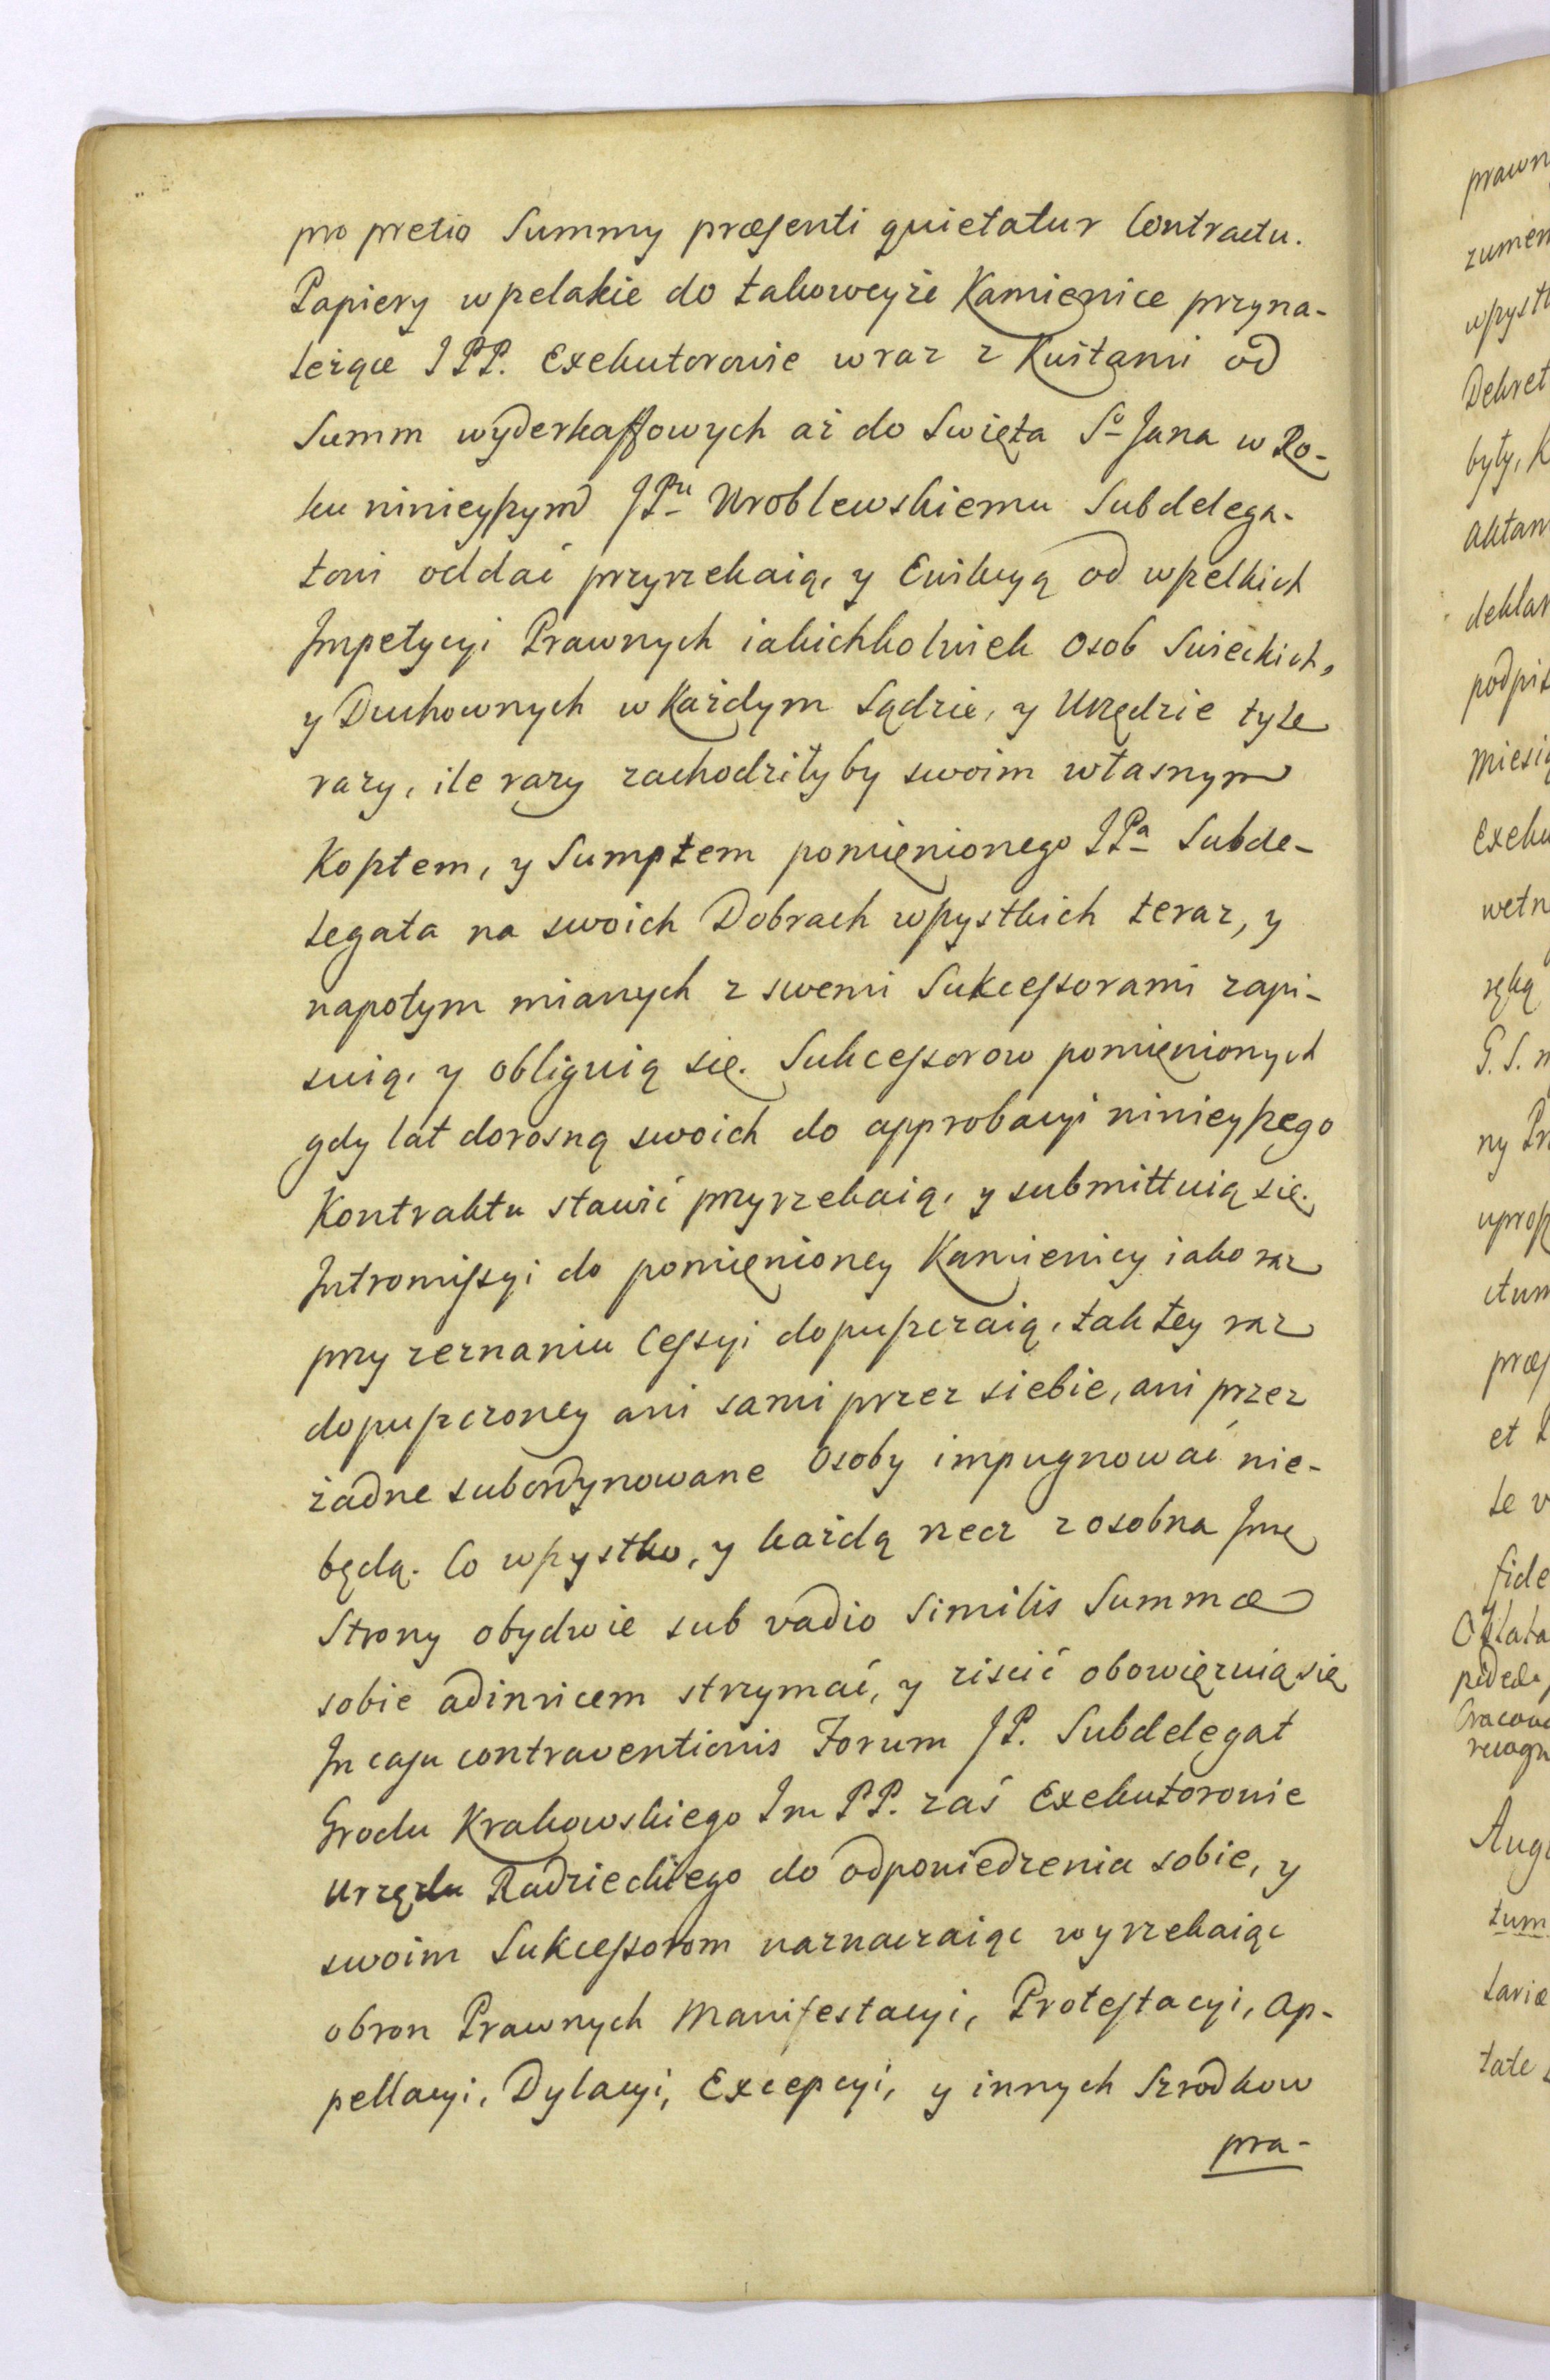 pro pretio Summy præsenti quietatur Contractu.
Papiery wszelakie do takoweyże Kamienice przyna-
leżące JPP. Exekutorowie wraz z Kwitami od
Summ wyderkaffowych aż do Swięta Sº Jana w Ro-
ku ninieyszym JPnu Wroblewskiemu Subdelega-
towi oddać przyrzekaią, y Ewikcyą od wszelkich
Impetycyi Prawnych iakichkolwiek Osob Swieckich,
y Duchownych w Każdym Sądzie, y Urzędzie tyle
razy, ile razy zachodziłyby swoim własnym
Kosztem, y Sumptem pomięnionego JPa Subde-
legata na swoich Dobrach wszystkich teraz, y
napotym mianych z swemi Sukcessorami zapi-
suią, y obliguią się. Sukcessorow pomięnionych
gdy lat dorosną swoich do approbacyi ninieyszego
Kontraktu stawić przyrzekaią, y submittuią się.
Intromissyi do pomięnioney Kamienicy iako raz
przy zeznaniu Cessyi dopuszczaią, tak tey raz
dopuszczoney ani sami przez siebie, ani przez
żadne subordynowane Osoby impugnować nie-
będą. Co wszystko, y każdą rzecz zosobna Jne
Strony obydwie sub vadio Similis Summæ
sobie adinvicem strzymać, y ziscić obowięzuią się
In casu contraventionis Forum JP. Subdelegat
Grodu Krakowskiego Im PP. zaś Exekutorowie
Urzędu Radzieckiego do odpowiedzenia sobie, y
swoim Sukcessorom naznaczaiąc wyrzekaiąc
obron Prawnych Manifestacyi, Protestacyi, Ap-
pellacyi, Dylacyi, Excepcyi, y innych Szrodkow
pra-